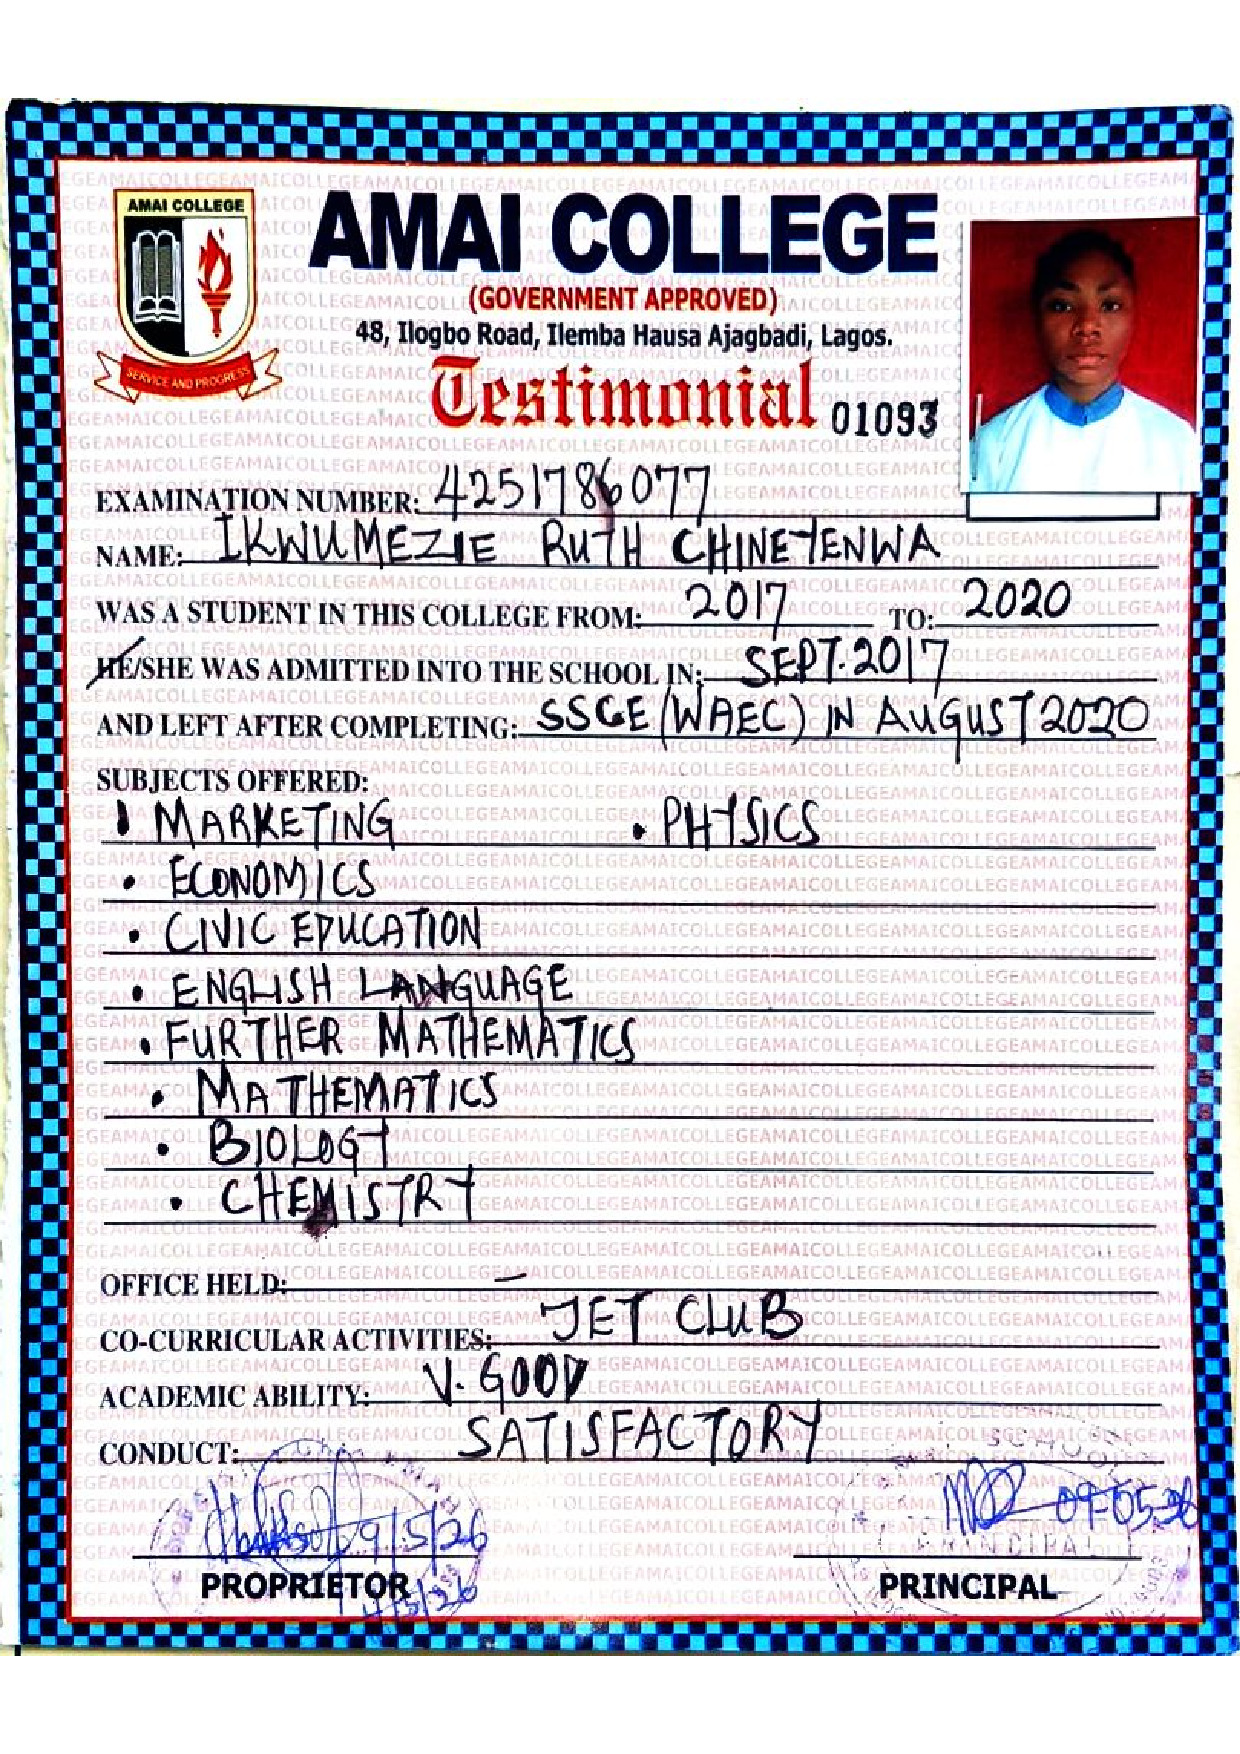 AMAI COLLEGE
AMAI COLLEGE
(GOVERNMENT APPROVED)
48, Ilogbo Road, Ilemba Hausa Ajagbadi, Lagos.
SERVICE AND PROGRESS
Testimonial 01093
EXAMINATION NUMBER: 4251786077
NAME: IKWUMEZIE RUTH CHINEYENWA
WAS A STUDENT IN THIS COLLEGE FROM: 2017 TO: 2020
HE/SHE WAS ADMITTED INTO THE SCHOOL IN: SEPT. 2017
AND LEFT AFTER COMPLETING: SSCE (WAEC) IN AUGUST 2020
SUBJECTS OFFERED:
• MARKETING • PHYSICS
• ECONOMICS
• CIVIC EDUCATION
• ENGLISH LANGUAGE
• FURTHER MATHEMATICS
• MATHEMATICS
• BIOLOGY
• CHEMISTRY
OFFICE HELD: —
CO-CURRICULAR ACTIVITIES: JET CLUB
ACADEMIC ABILITY: V. GOOD
CONDUCT: SATISFACTORY
9/5/26
PROPRIETOR
PRINCIPAL